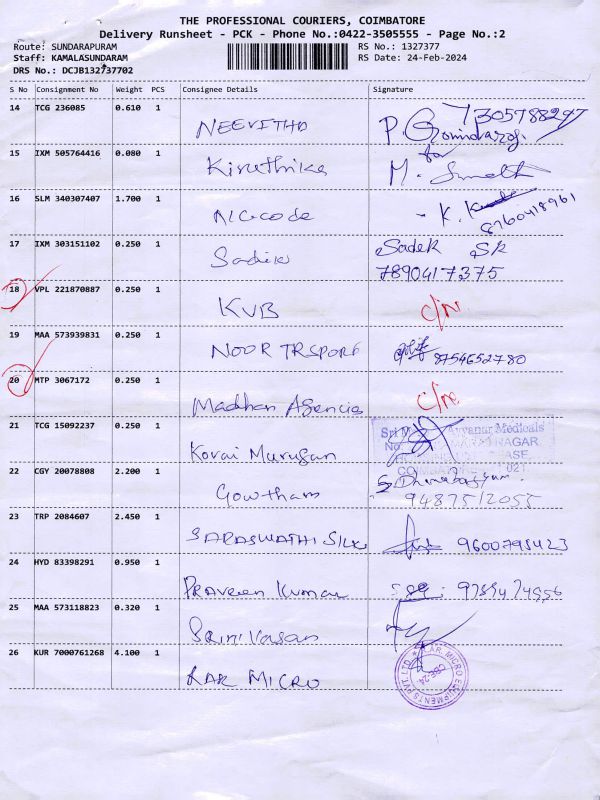 THE PROFESSIONAL COURIERS, COIMBATORE
Delivery Runsheet - PCK - Phone No.:0422-3505555 - Page No.:2
Route: SUNDARAPURAM RS No.: 1327377
Staff: KAMALASUNDARAM RS Date: 24-Feb-2024
DRS No.: DCJB132737702
S No Consignment No Weight PCS Consignee Details Signature
14 TCG 236085 0.610 1
NEEVITHA P. Govindaraj 7305788297
15 IXM 505764416 0.080 1 for
Kiruthika M.
16 SLM 340307407 1.700 1
- K. 8760418961
17 IXM 303151102 0.250 1
Sadik Sadek SK
7890417375
18 VPL 221870887 0.250 1
KVB C/N
19 MAA 573939831 0.250 1
NOOR TRSPORT 8754652780
20 MTP 3067172 0.250 1
Madhan Agencies C/N
21 TCG 15092237 0.250 1
Sri Ayyanar Medicals
NAGAR
PHASE
Kovai Murugan
22 CGY 20078808 2.200 1
Gowtham 9487512055
23 TRP 2084607 2.450 1
SARASWATHI SILKS 9600795423
24 HYD 83398291 0.950 1
PRAVEEN Kumar
25 MAA 573118823 0.320 1
Srinivasan
26 KUR 7000761268 4.100 1
KAR MICRO
KAR MICRO EQUIPMENTS PVT. LTD.
CBE-24.